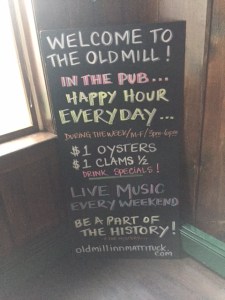 WELCOME TO
THE OLD MILL!
IN THE PUB...
HAPPY HOUR
EVERYDAY...
DURING THE WEEK/M-F/3pm-6pm
$1 OYSTERS
$1 CLAMS ½
DRINK SPECIALS!
LIVE MUSIC
EVERY WEEKEND
BE A PART OF
THE HISTORY!
oldmillinnmattituck
.com